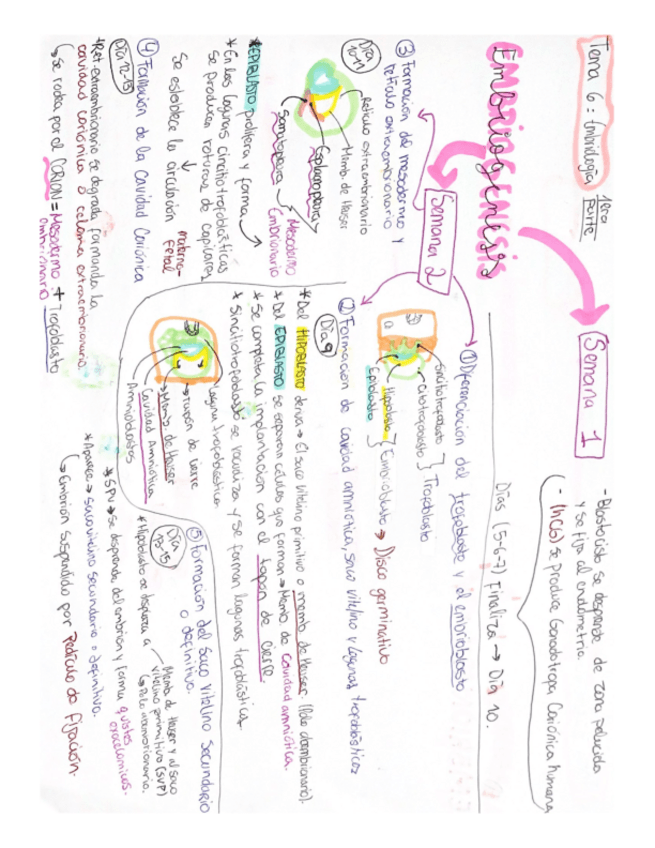 Tema 6: Embriología 1era Parte
EMBRIOGENESIS
Semana 1
- Blastocisto se desprende de zona pelucida
y se fija al endometrio.
- (hCG) se produce Gonadotropa Coriónica humana
Días (5-6-7) Finaliza → Día 10.
Semana 2
① Diferenciacion del trofoblasto y el embrioblasto
Sincitiotrofoblasto
Citotrofoblasto } Trofoblasto
Hipoblasto
Epiblasto } Embrioblasto → Disco germinativo
② Formacion de cavidad amniotica, saco vitelino y lagunas trofoblásticas
Día 9
* Del HIPOBLASTO deriva → El saco vitelino primitivo o memb. de Heuser
* Del EPIBLASTO se separan células que forman → Memb. de cavidad amniótica.
* Se completa la implantacion con el tapon de cierre
* Sincitiotrofoblasto se vacuoliza y se forman lagunas trofoblásticas.
Lagunas trofoblásticas
→ Tapón de cierre
→ Memb. de Heuser
Cavidad Amniótica
Amnioblastos
③ Formacion del mesodermo y
retículo extraembrionario
Día 10-11
Retículo extraembrionario
Memb. de Heuser
Esplacnopleura
Somatopleura
Mesodermo
Embrionario
*EPIBLASTO prolifera y forma
* En las lagunas sincitiotrofoblásticas
se producen roturas de capilares
↓
Se establece la circulación materno-
fetal
④ Formación de la Cavidad Coriónica
Día 12-13
*Ret. extraembrionario se degrada formando la
cavidad coriónica o celoma extraembrionario.
↳ Se rodea por el CORION = Mesodermo + Trofoblasto
embrionario
⑤ Formacion del Saco Vitelino Secundario
o definitivo.
Día 13-15
* Hipoblasto se desplaza a
Memb. de Heuser y al saco
vitelino primitivo (SVP)
* SPV → se desprende del embrion y forma quistes
exocelomicos.
* Aparece → saco vitelino secundario o definitivo.
↳ Embrion suspendido por Pedículo de Fijación.